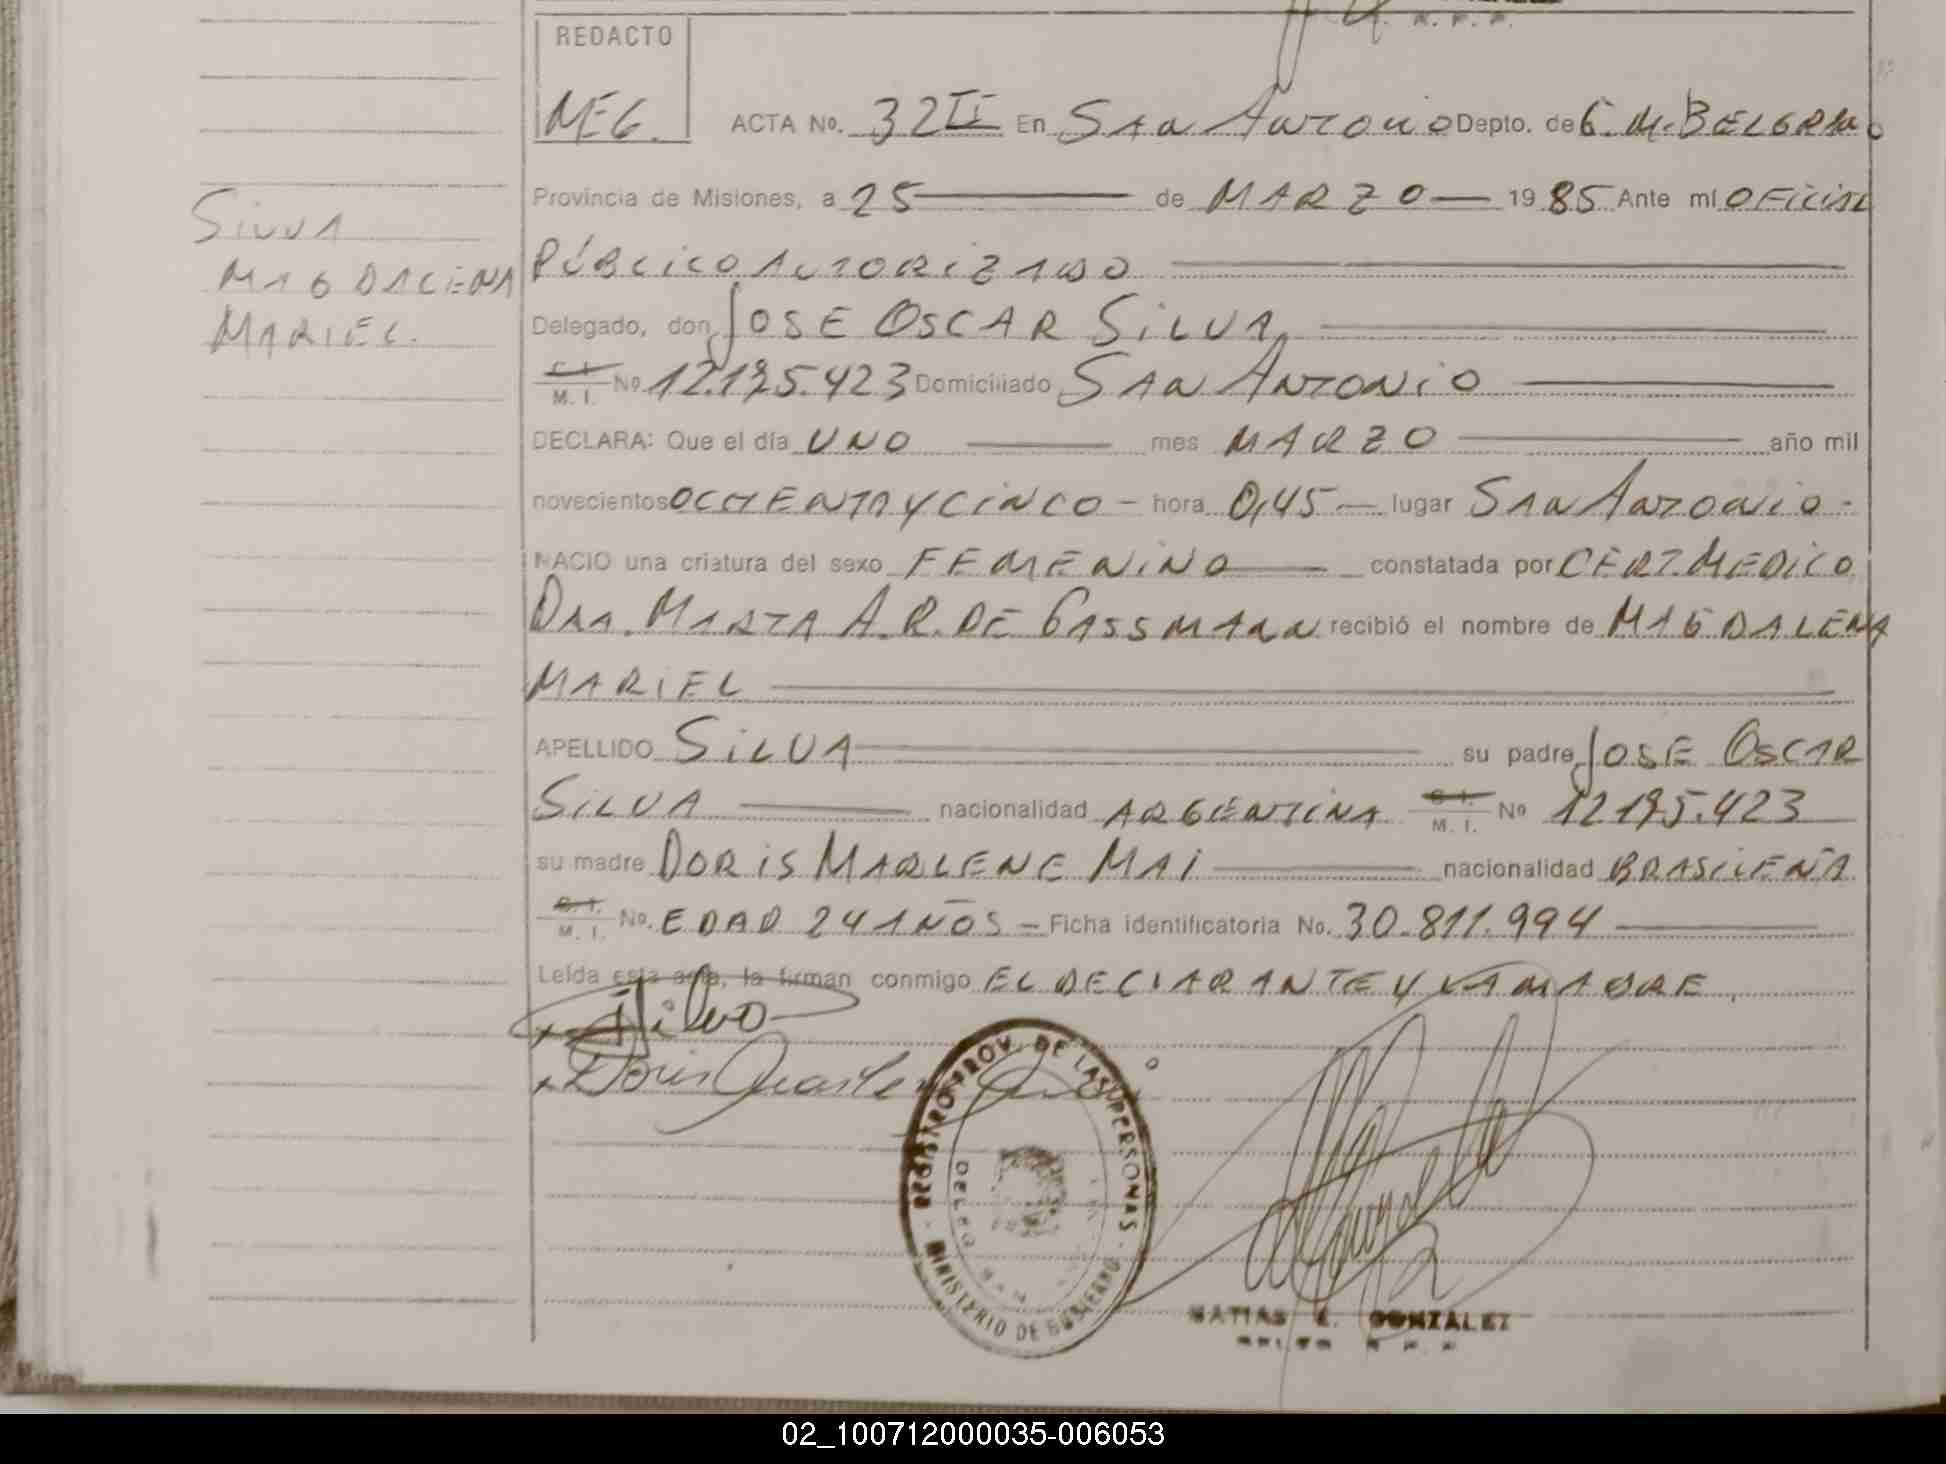 R. P. P.
REDACTO
MEG.
ACTA No. 32 II En San Antonio Depto. de G. M. BELGRANO
Provincia de Misiones, a 25 de MARZO 1985 Ante mi OFICIAL
PÚBLICO AUTORIZADO
SILVA
MAGDALENA
MARIEL.
Delegado, don JOSE OSCAR SILVA
C. I. M. I. No 12.195.423 Domiciliado SAN ANTONIO
DECLARA: Que el día UNO mes MARZO año mil
novecientos OCHENTA Y CINCO - hora 0,45 - lugar SAN ANTONIO -
NACIO una criatura del sexo FEMENINO constatada por CERT. MEDICO
DRA. MARTA A. R. DE GASSMANN recibió el nombre de MAGDALENA
MARIEL
APELLIDO SILVA su padre JOSE OSCAR
SILVA nacionalidad ARGENTINA C. I. M. I. No 12195.423
su madre DORIS MARLENE MAI nacionalidad BRASILEÑA
C. I. M. I. No. EDAD 24 AÑOS - Ficha identificatoria No. 30.811.994
Leída esta acta, la firman conmigo EL DECLARANTE Y LA MADRE
Silva
Doris Marlene Mai
REGISTRO PROV. DE LAS PERSONAS
MINISTERIO DE GOBIERNO
MATIAS E. GONZALEZ
R. P. P.
02_100712000035-006053